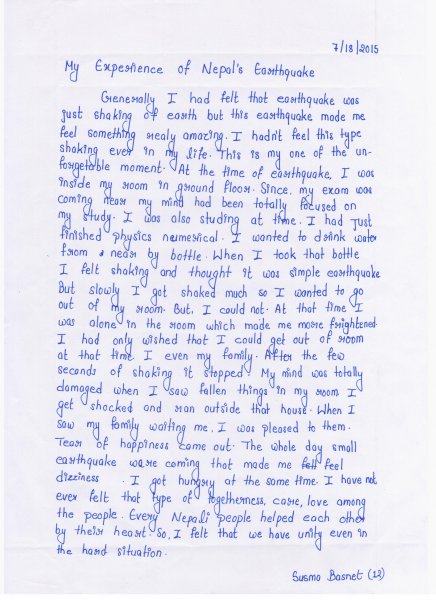 7/18/2015
My Experience of Nepal's Earthquake
Generally I had felt that earthquake was
just shaking of earth but this earthquake made me
feel something realy amazing. I hadn't feel this type
shaking ever in my life. This is my one of the un-
forgetable moment. At the time of earthquake, I was
inside my room in ground floor. Since, my exam was
coming near my mind had been totally focused on
my study. I was also studing at time. I had just
finished physics numerical. I wanted to drink water
from near by bottle. When I took that bottle
I felt shaking and thought it was simple earthquake
But slowly I got shaked much so I wanted to go
out of my room. But, I could not. At that time I
was alone in the room which made me more frightened.
I had only wished that I could get out of room
at that time I even my family. After the few
seconds of shaking it stopped. My mind was totally
damaged when I saw fallen things in my room I
get shocked and ran outside that house. When I
saw my family waiting me, I was pleased to them.
Tear of happiness came out. The whole day small
earthquake were coming that made me feel
dizziness . I got hungry at the same time. I have not
ever felt that type of togetherness, care, love among
the people. Every Nepali people helped each other
by their heart. So, I felt that we have unity even in
the hard situation.
Susma Basnet (12)